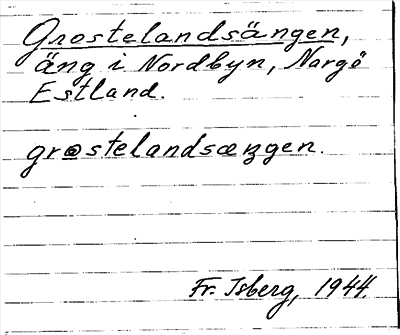 Grostelandsängen,
äng i Nordbyn, Nargö
Estland.
grostelandsæŋgen.
Fr. Isberg, 1944.